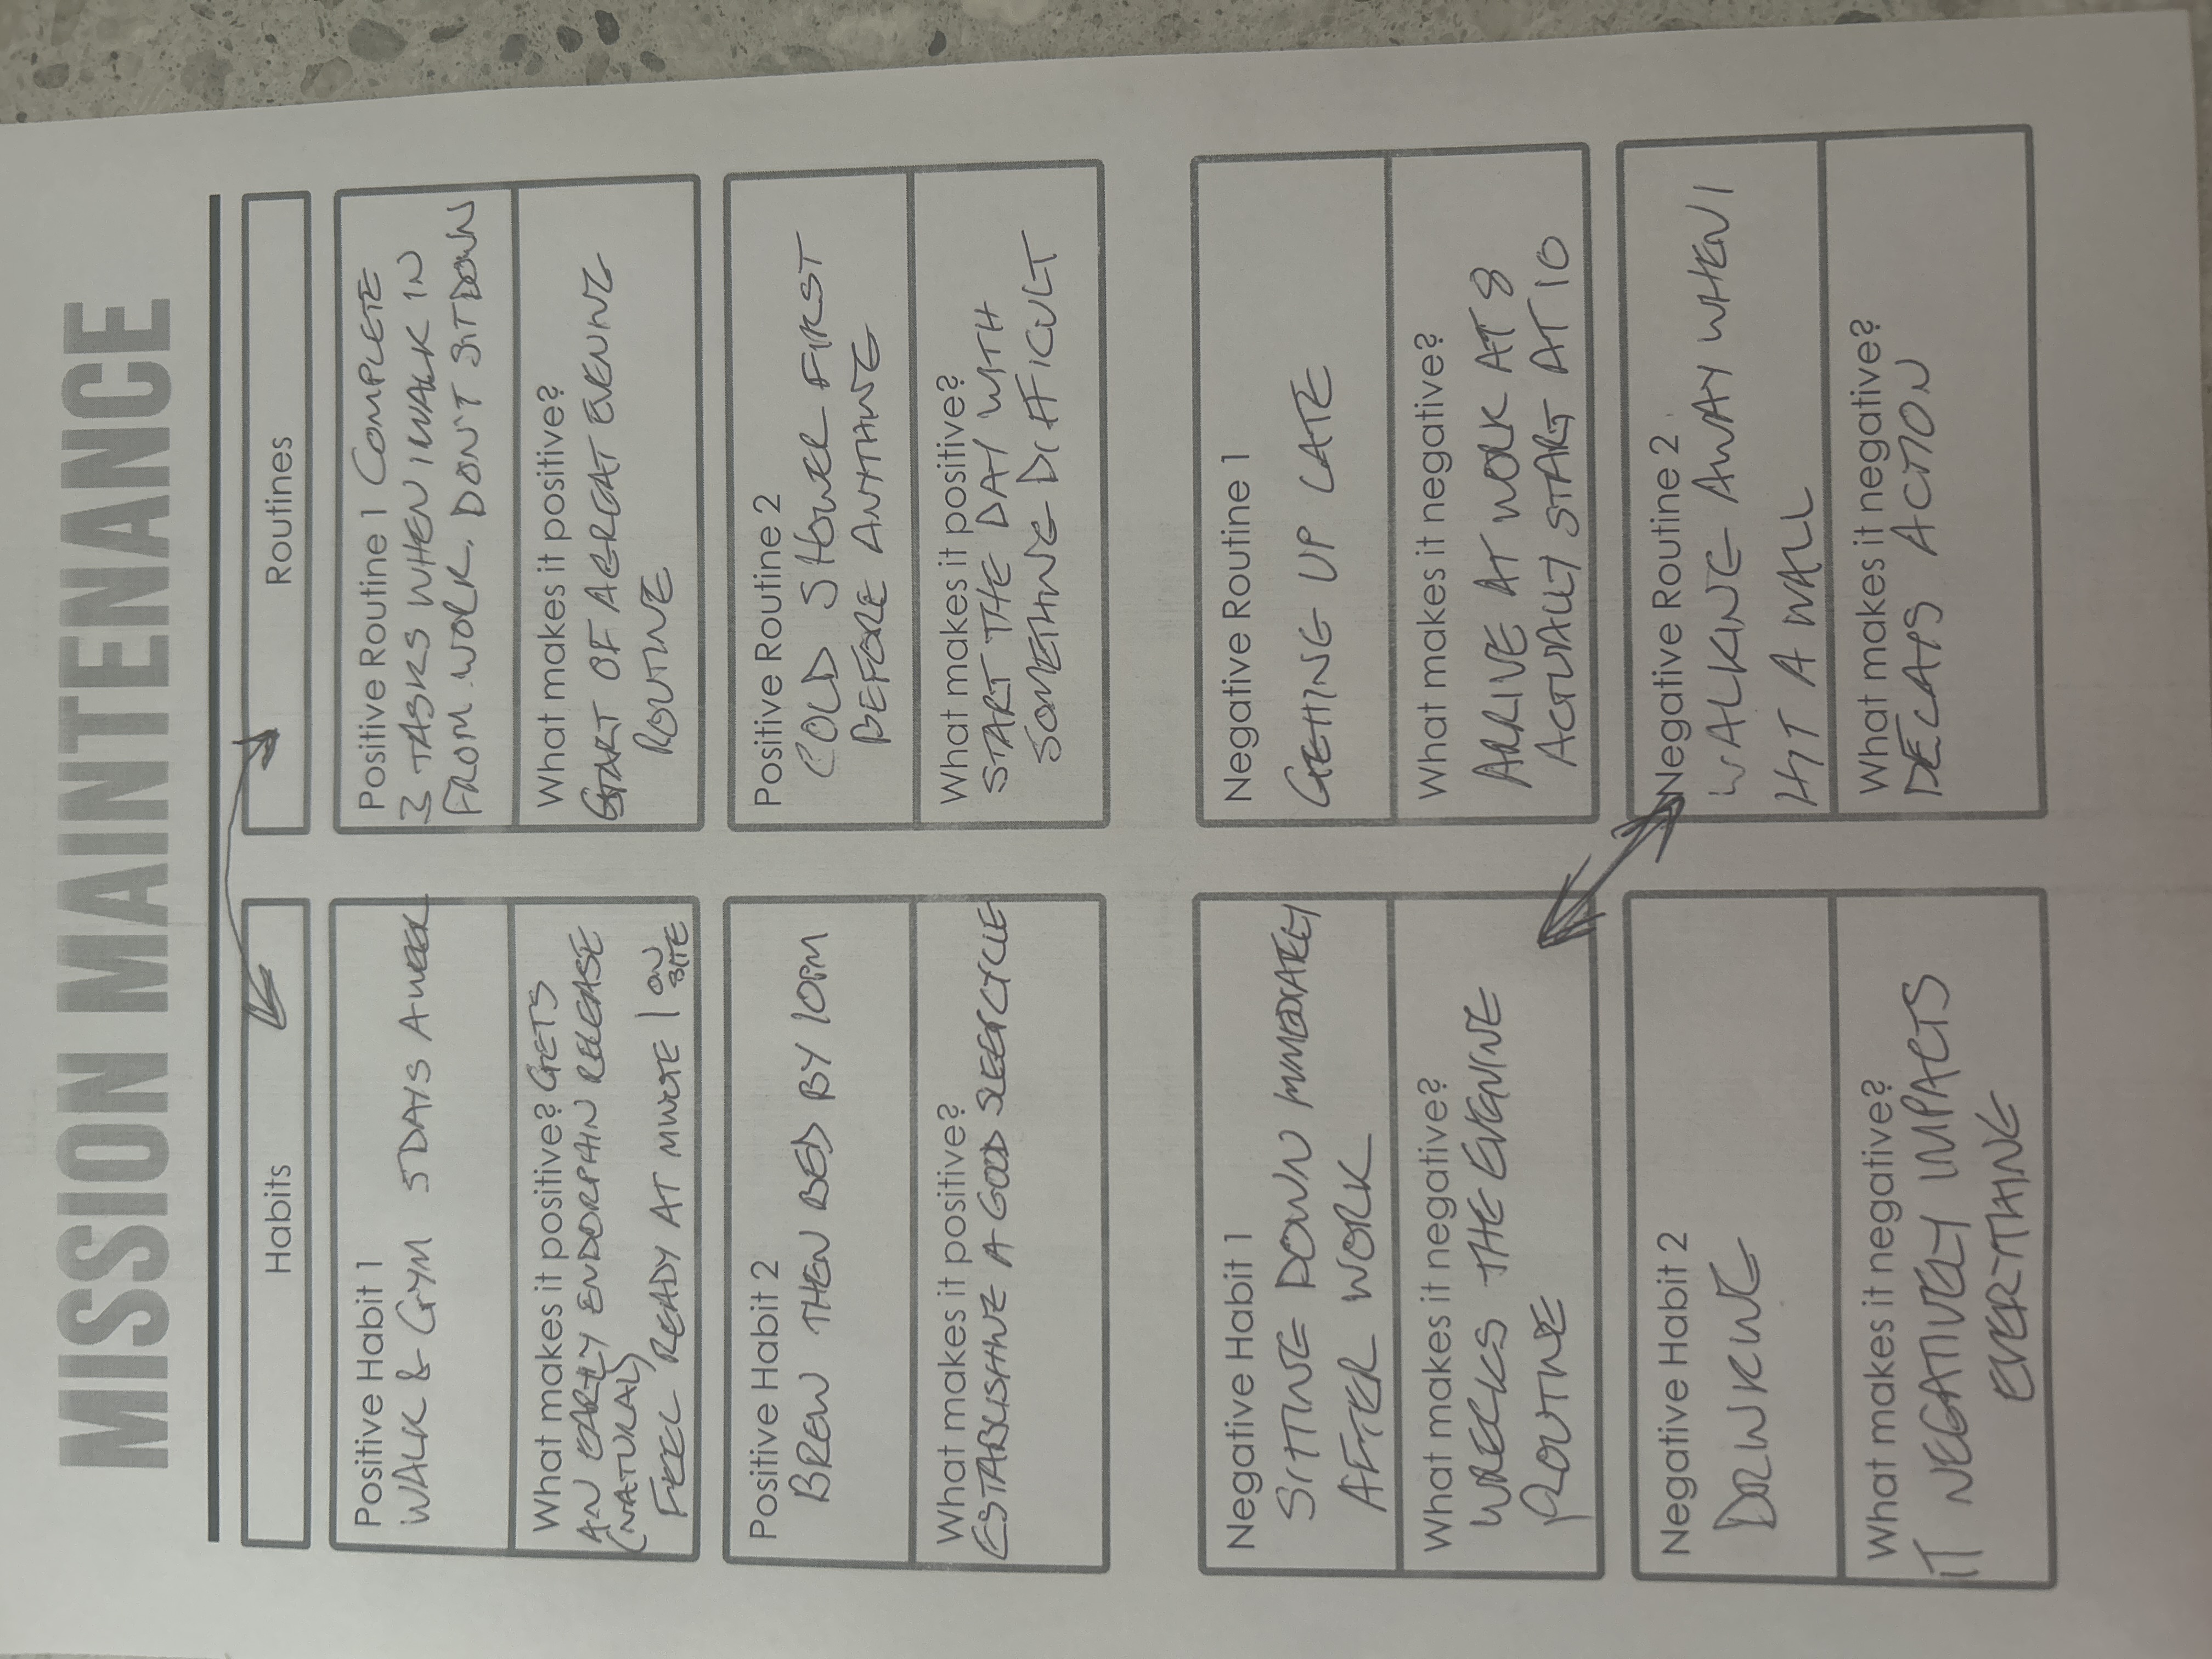 MISSION MAINTENANCE
Habits
Positive Habit 1
WALK & GYM 5 DAYS A WEEK
What makes it positive? GETS
AN EARLY ENDORPHIN RELEASE
(NATURAL)
FEEL READY AT MINUTE 1 ON
SITE
Positive Habit 2
BREW THEN BED BY 10PM
What makes it positive?
ESTABLISHING A GOOD SLEEP CYCLE
Negative Habit 1
SITTING DOWN IMMEDIATELY
AFTER WORK
What makes it negative?
WRECKS THE EVENING
ROUTINE
Negative Habit 2
DRINKING
What makes it negative?
IT NEGATIVELY IMPACTS
EVERYTHING
Routines
Positive Routine 1 COMPLETE
3 TASKS WHEN I WALK IN
FROM WORK. DONT SIT DOWN
What makes it positive?
START OF A GREAT EVENING
ROUTINE
Positive Routine 2
COLD SHOWER FIRST
BEFORE ANYTHING
What makes it positive?
START THE DAY WITH
SOMETHING DIFFICULT
Negative Routine 1
GETTING UP LATE
What makes it negative?
ARRIVE AT WORK AT 8
ACTUALLY START AT 10
Negative Routine 2
WALKING AWAY WHEN I
HIT A WALL
What makes it negative?
DELAYS ACTION